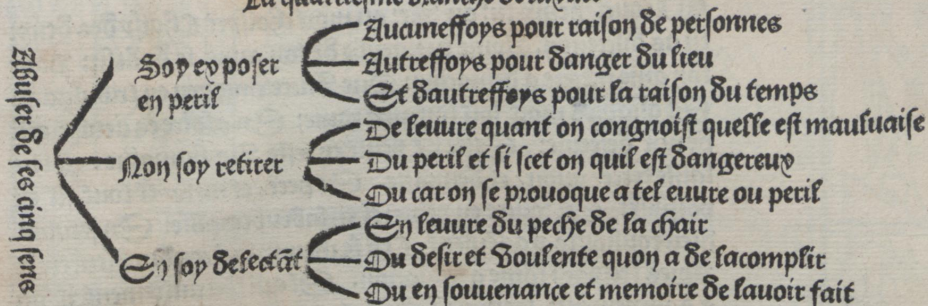 La quatriesme branche
Abuser de ses cinq sens
Soy exposer
en peril
Aucuneffoys pour raison de personnes
Autreffoys pour danger du lieu
Et dautreffoys pour la raison du temps
Non soy retirer
De leuure quant on congnoist quelle est mauluaise
Du peril et si scet on quil est dangereux
Ou car on se prouoque a tel euure ou peril
En soy delectāt
En leuure du peche de la chair
Ou desir et voulente quon a de lacomplir
Ou en souuenance et memoire de lauoir fait